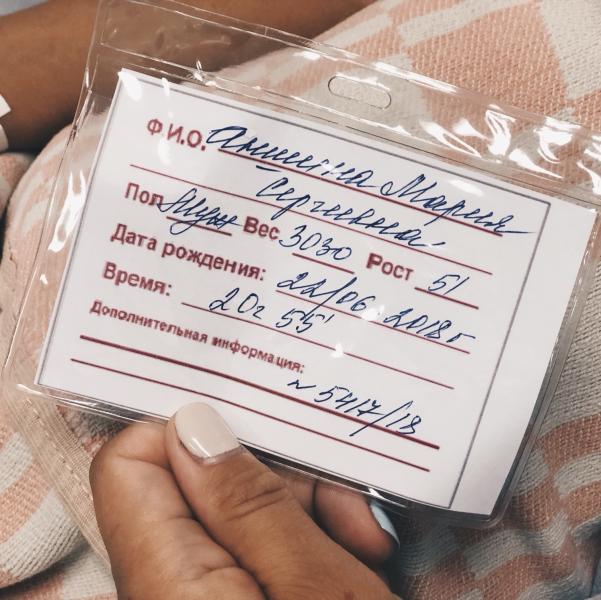 Ф.И.О. Аншина Мария
Сергеевна
Пол Муж Вес 3030 Рост 51
Дата рождения: 22/06.2018г
Время: 20г 55'
Дополнительная информация:
№ 5417/18